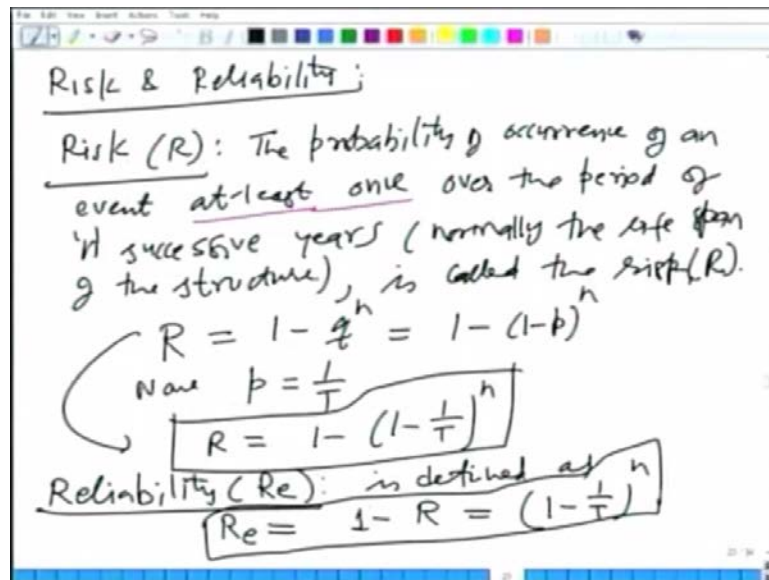 File Edit View Insert Actions Tools Help
Risk & Reliability:
Risk (R): The probability of occurrence of an
event at-least once over the period of
'n' successive years (normally the life span
of the structure), is called the risk (R).
R = 1 - q^n = 1 - (1-p)^n
Now p = 1/T
R = 1 - (1 - 1/T)^n
Reliability (Re): is defined as
Re = 1 - R = (1 - 1/T)^n